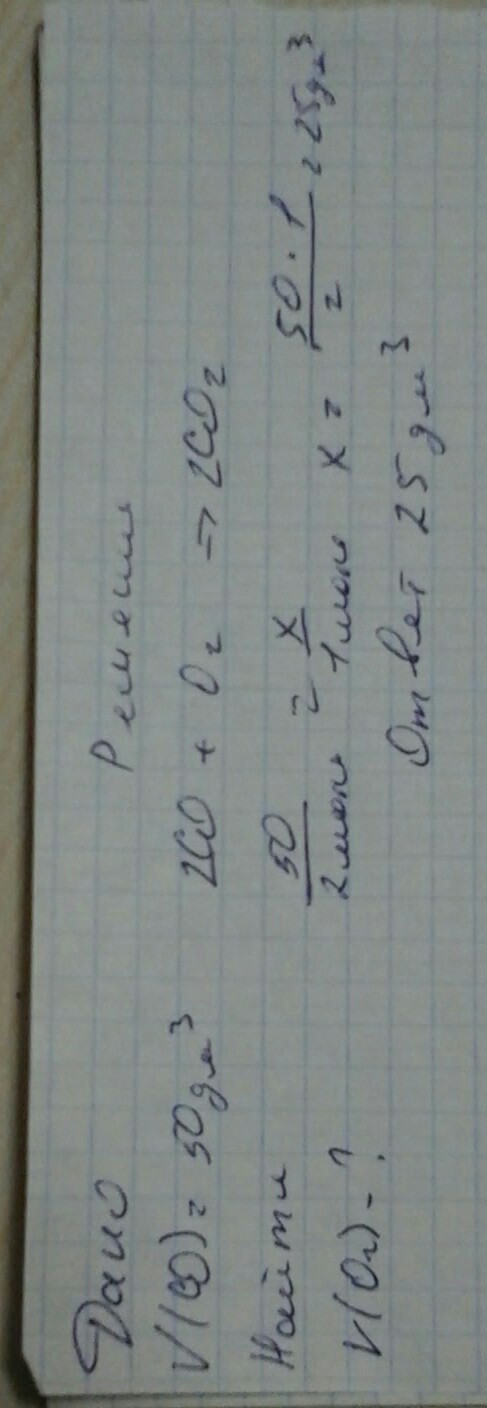 Дано
V(CO) = 50 дм³
Найти
V(O₂) - ?
Решение
2CO + O₂ => 2CO₂
50/2моль = x/1моль x = 50 · 1/2 = 25дм³
Ответ 25 дм³